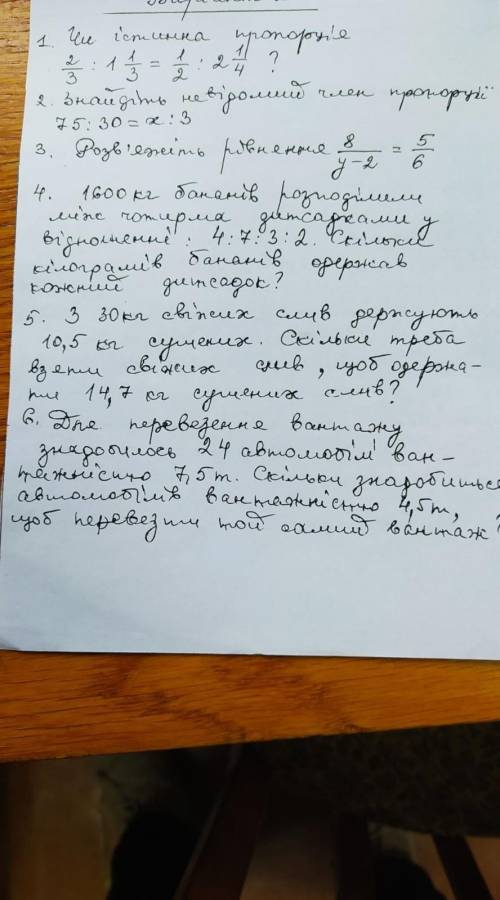 1. Чи істинна пропорція
2/3 : 1 1/3 = 1/2 : 2 1/4 ?
2. Знайдіть невідомий член пропорції
75 : 30 = x : 3
3. Розв'яжіть рівнення 8/(y-2) = 5/6
4. 1600 кг бананів розподілили
між чотирма дитсадками у
відношенні : 4 : 7 : 3 : 2. Скільки
кілограмів бананів одержав
кожний дитсадок?
5. З 30кг свіжих слив держують
10,5 кг сушених. Скільки треба
взяти свіжих слив, щоб одержа-
ти 14,7 кг сушених слив?
6. Для перевезення вантажу
знадобилось 24 автомобілі ван-
тажністю 7,5т. Скільки знадобиться
автомобілів вантажністю 4,5т,
щоб перевезти той самий вантаж?